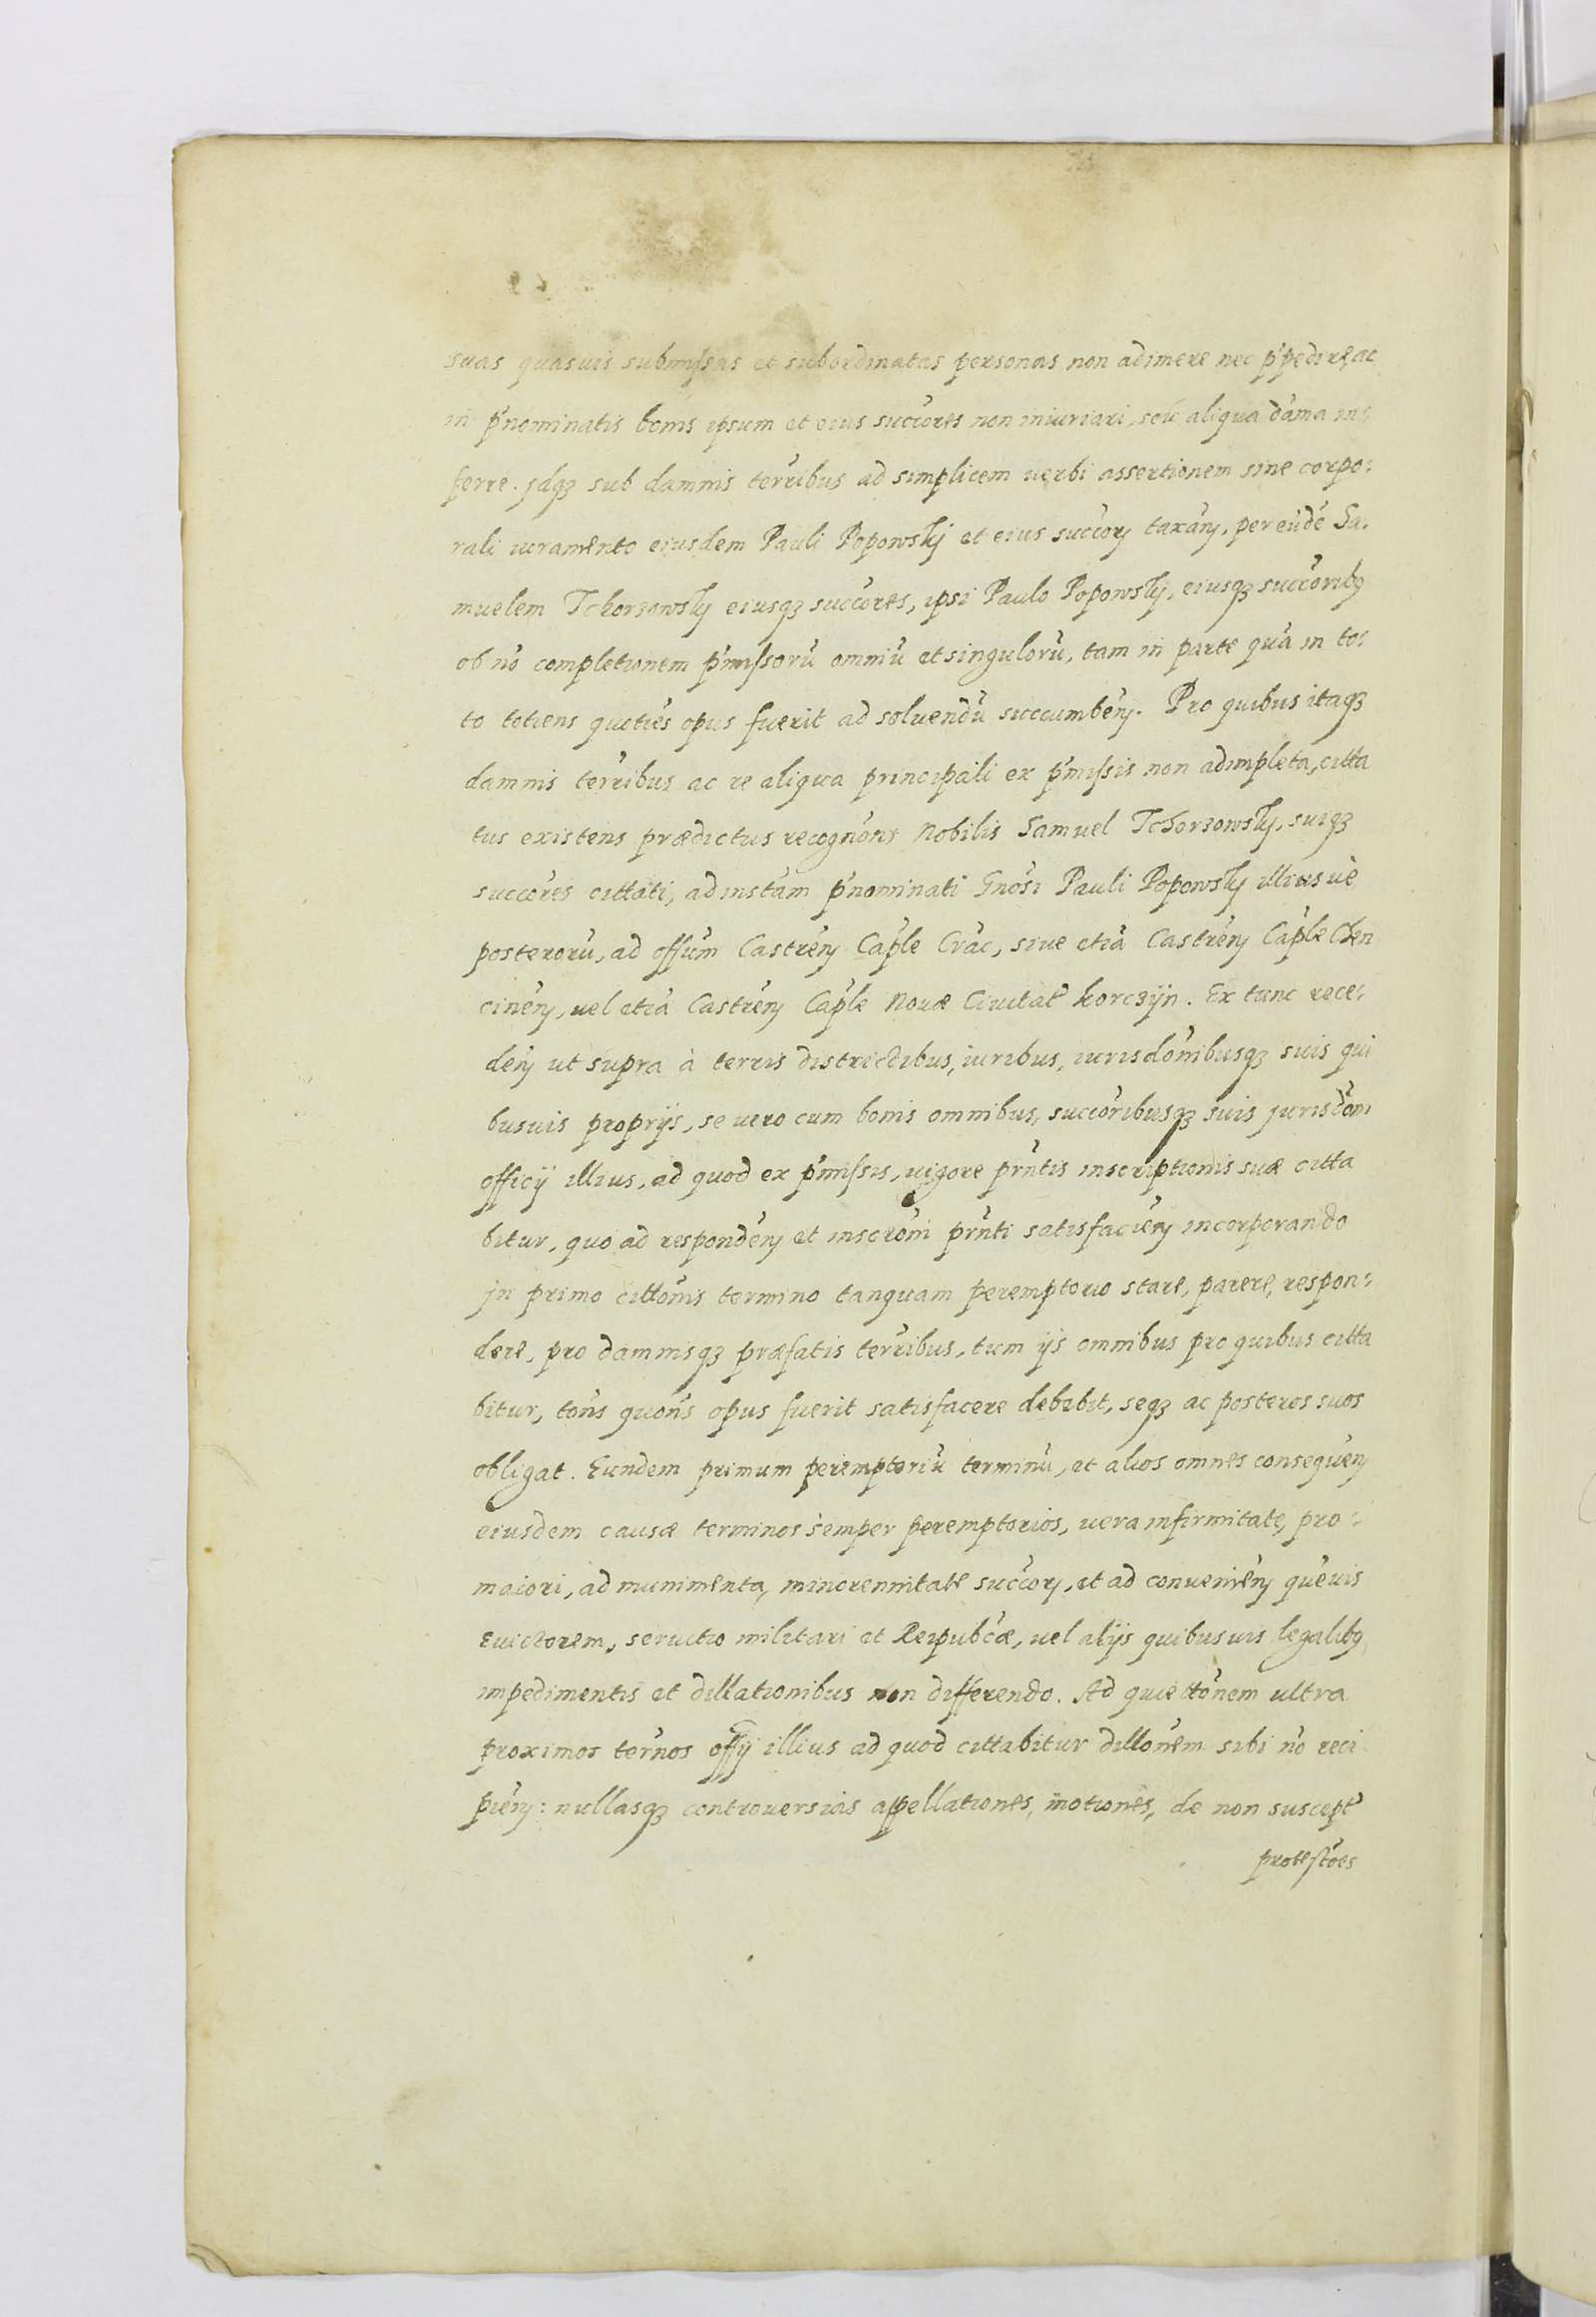 suas quasuis submissas et subordinatas personas non adimere nec p'pedire, ac
in p'nominatis bonis ipsum et eius succ̃ores non iniuriari, seu aliqua dam̃a in:
ferre. jdqꝫ sub damnis ter̃ribus ad simplicem uerbi assertionem sine corpo:
rali iuramento eiusdem Pauli Popowsky et eius succ̃orꝫ taxãn, per eũdẽ Sa:
muelem Tchorzowsky eiusqꝫ succ̃ores, ipsi Paulo Popowsky, eiusqꝫ succ̃oribꝫ
ob nõ completionem p'missorũ omniũ et singulorũ, tam in parte quã in to:
to totiens quotiẽs opus fuerit ad soluendũ succumbẽn. Pro quibus itaqꝫ
damnis ter̃ribus ac re aliqua principali ex p'missis non adimpleta, citta
tus existens prædictus recognõns Nobilis Samuel Tchorzowsky, suiqꝫ
succ̃ores cittati, ad instãm p'nominati Gnõsi Pauli Popowsky illiusuè
posterorũ, ad offũm Castrẽn Cap̃le Crãc, siue etiã Castrẽn Cap̃le Chen
cinẽn, uel etiã Castrẽn Cap̃le Nouæ Ciuitat̃ Korczÿn. Ex tunc rece:
dẽn ut supra à terris districtibus, iuribus, iurisdõnibusqꝫ suis qui
busuis proprijs, se uero cum bonis omnibus, succ̃oribusqꝫ suis jurisdõni
officij illius, ad quod ex p'missis, uigore pr̃ntis inscriptionis suæ citta
bitur, quo ad respondẽn et inscrõni pr̃nti satisfaciẽn incorporando
jn primo cittõnis termino tanquam peremptorio stare, parere, respon:
dere, pro damnisqꝫ præfatis ter̃ribus, tum ijs omnibus pro quibus citta
bitur, tõns quõns opus fuerit satisfacere debebit, seqꝫ ac posteros suos
obligat. Eundem primum peremptoriũ terminũ, et alios omnes consequẽn
eiusdem causæ terminos semper peremptorios, uera infirmitate, pro:
maiori, ad munimenta, minorennitate succ̃orꝫ, et ad conueniẽn quẽuis
Euictorem, seruitio militari et Reipub̃cæ, uel alijs quibusuis legalibꝫ
impedimentis et dillationibus non differendo. Ad quiettõnem ultra
proximos ter̃nos off̃ij illius ad quod cittabitur dillõnem sibi nõ reci
piẽn: nullasqꝫ controuersias appellationes, motiones, de non suscept̃
protestões